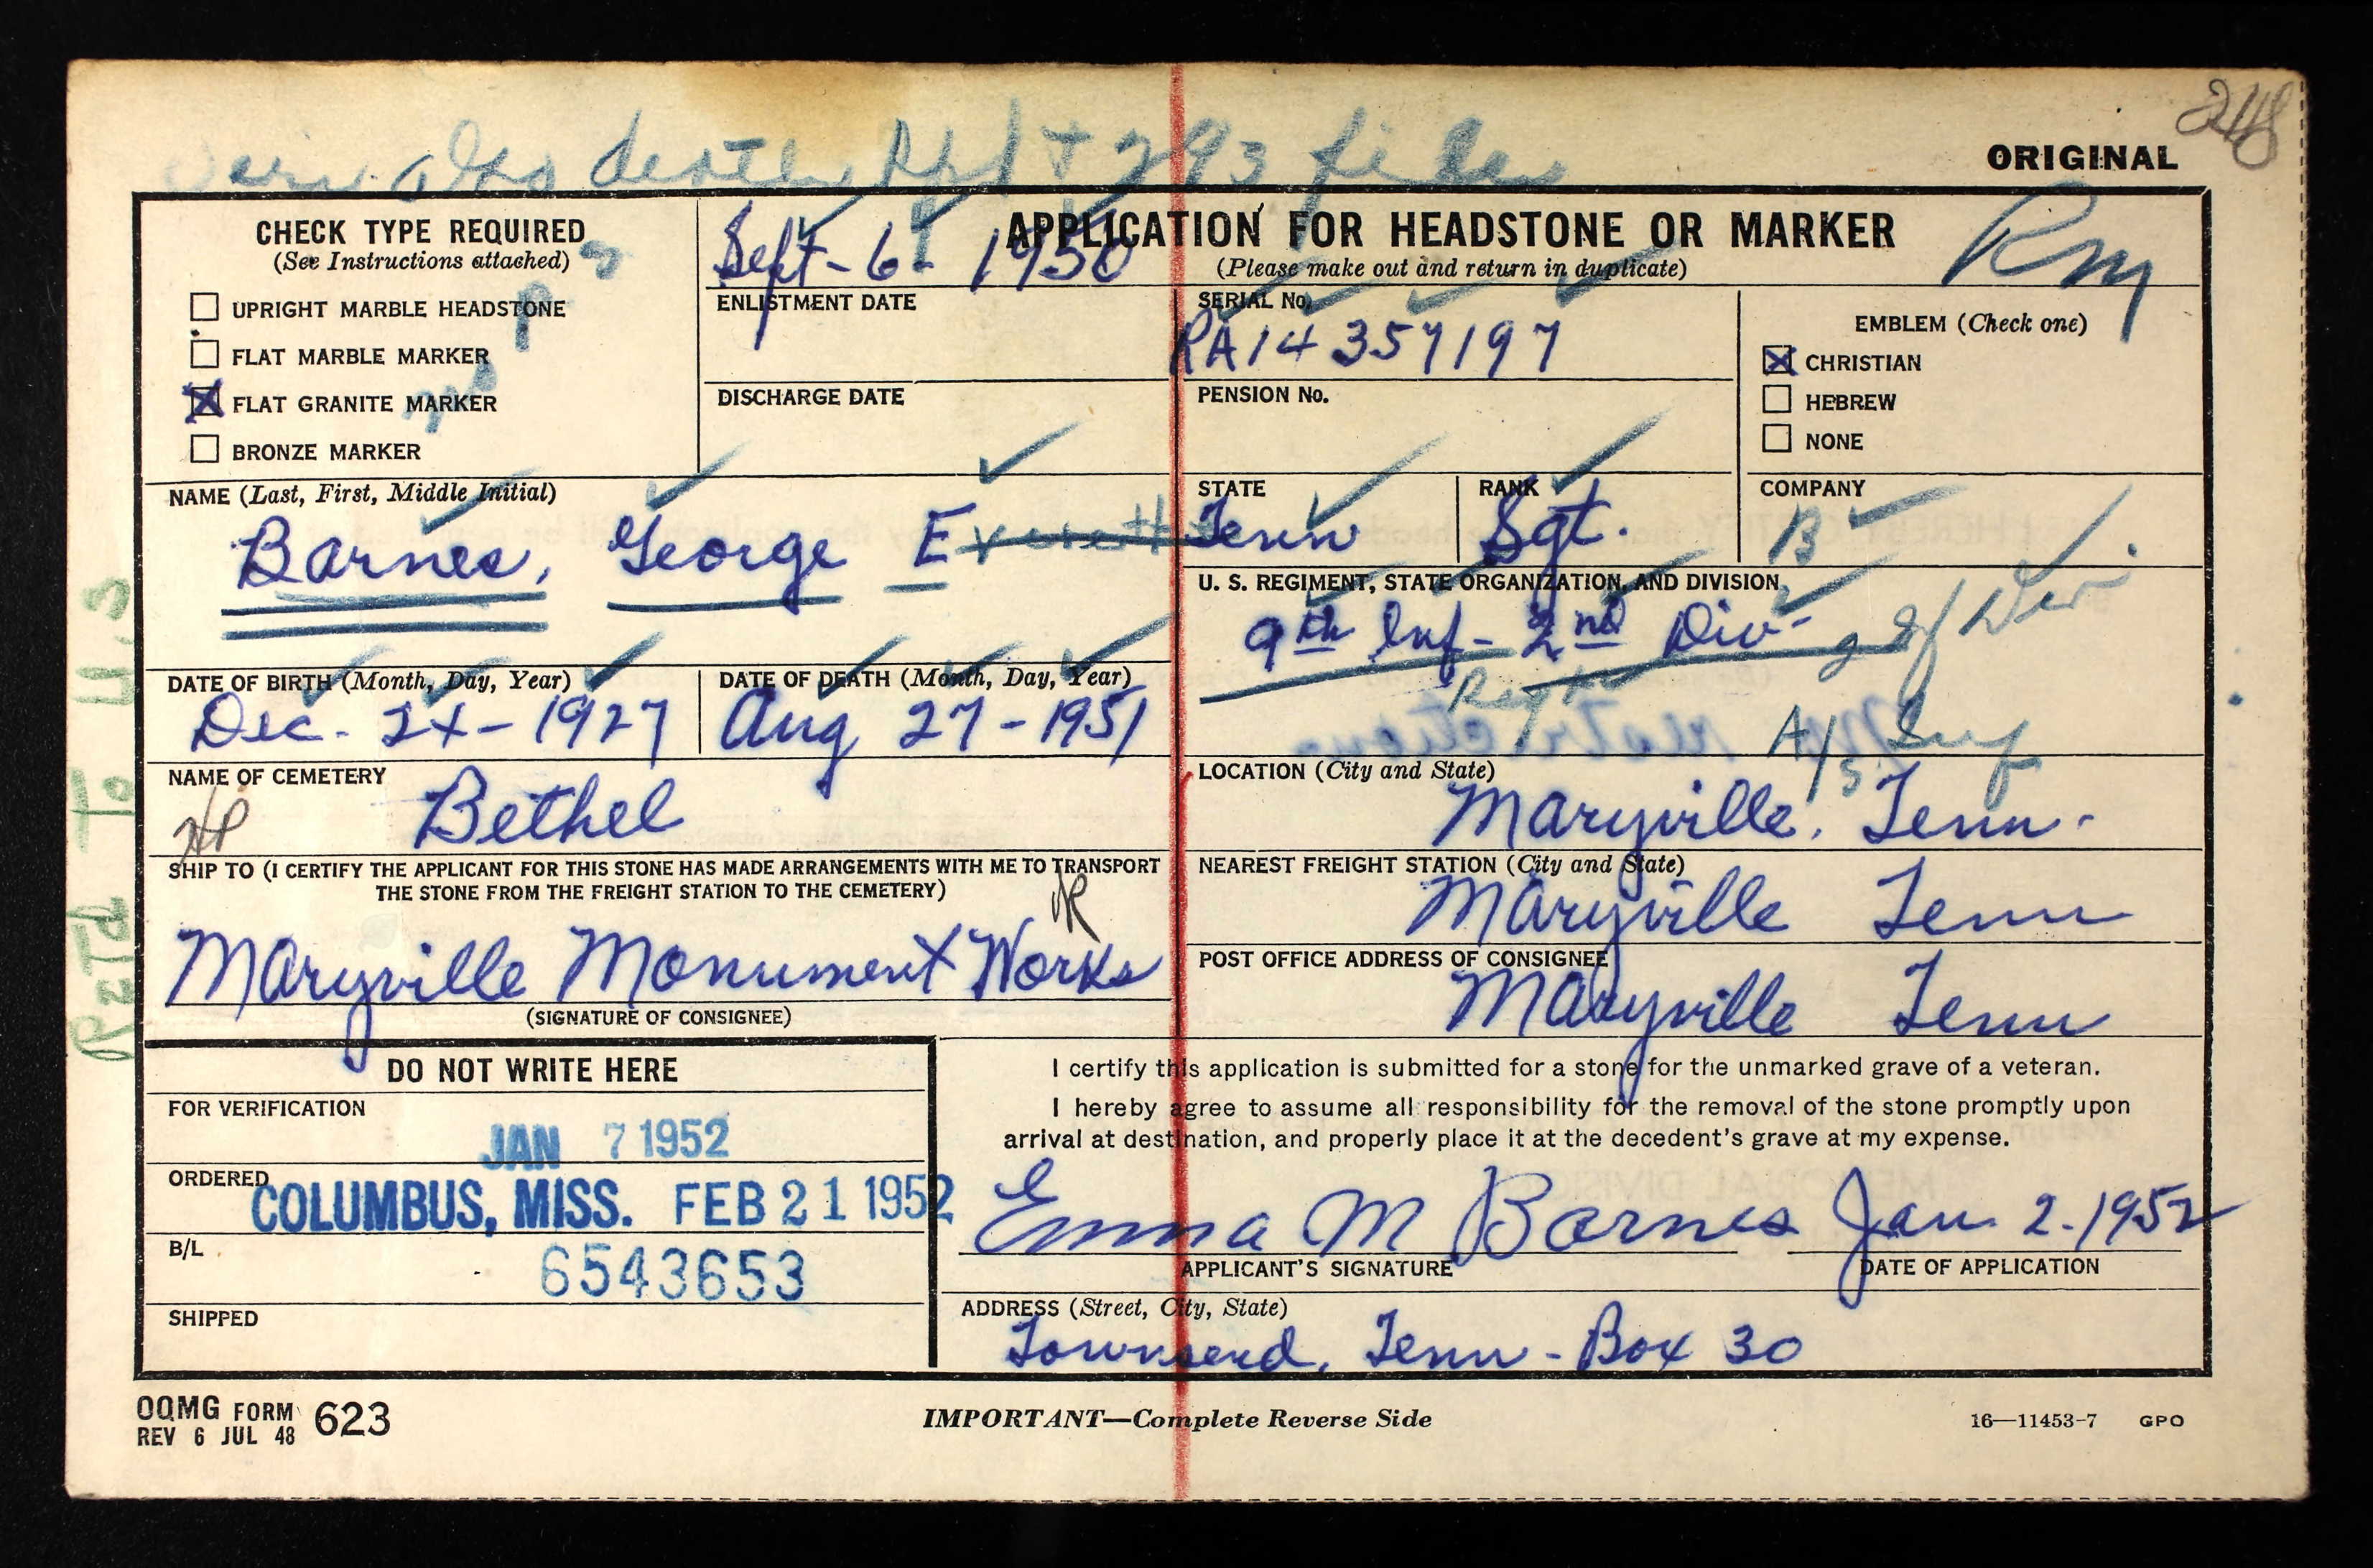 248
ORIGINAL
also death Rpt + 293 file
CHECK TYPE REQUIRED
(See Instructions attached)
UPRIGHT MARBLE HEADSTONE
FLAT MARBLE MARKER
X FLAT GRANITE MARKER
BRONZE MARKER
Sept - 6 - 1950
ENLISTMENT DATE
DISCHARGE DATE
APPLICATION FOR HEADSTONE OR MARKER
(Please make out and return in duplicate)
Rm
SERIAL No.
RA14 357197
PENSION No.
EMBLEM (Check one)
X CHRISTIAN
HEBREW
NONE
NAME (Last, First, Middle Initial)
Barnes, George Everett
STATE
Tenn
RANK
Sgt.
COMPANY
B
U. S. REGIMENT, STATE ORGANIZATION, AND DIVISION
9th Inf - 2nd Div -
2 Inf Div
Regt
Inf
DATE OF BIRTH (Month, Day, Year)
Dec. 24 - 1927
DATE OF DEATH (Month, Day, Year)
Aug 27 - 1951
NAME OF CEMETERY
Bethel
LOCATION (City and State)
Maryville, Tenn.
SHIP TO (I CERTIFY THE APPLICANT FOR THIS STONE HAS MADE ARRANGEMENTS WITH ME TO TRANSPORT
THE STONE FROM THE FREIGHT STATION TO THE CEMETERY)
Maryville Monument Works
(SIGNATURE OF CONSIGNEE)
NEAREST FREIGHT STATION (City and State)
Maryville Tenn
POST OFFICE ADDRESS OF CONSIGNEE
Maryville Tenn
Ret'd To U.S
DO NOT WRITE HERE
FOR VERIFICATION
JAN 7 1952
ORDERED
COLUMBUS, MISS. FEB 21 1952
B/L
6543653
SHIPPED
I certify this application is submitted for a stone for the unmarked grave of a veteran.
I hereby agree to assume all responsibility for the removal of the stone promptly upon
arrival at destination, and properly place it at the decedent's grave at my expense.
Emma M Barnes Jan 2. 1952
APPLICANT'S SIGNATURE
DATE OF APPLICATION
ADDRESS (Street, City, State)
Townsend, Tenn - Box 30
OQMG FORM 623
REV 6 JUL 48
IMPORTANT—Complete Reverse Side
16—11453-7 GPO